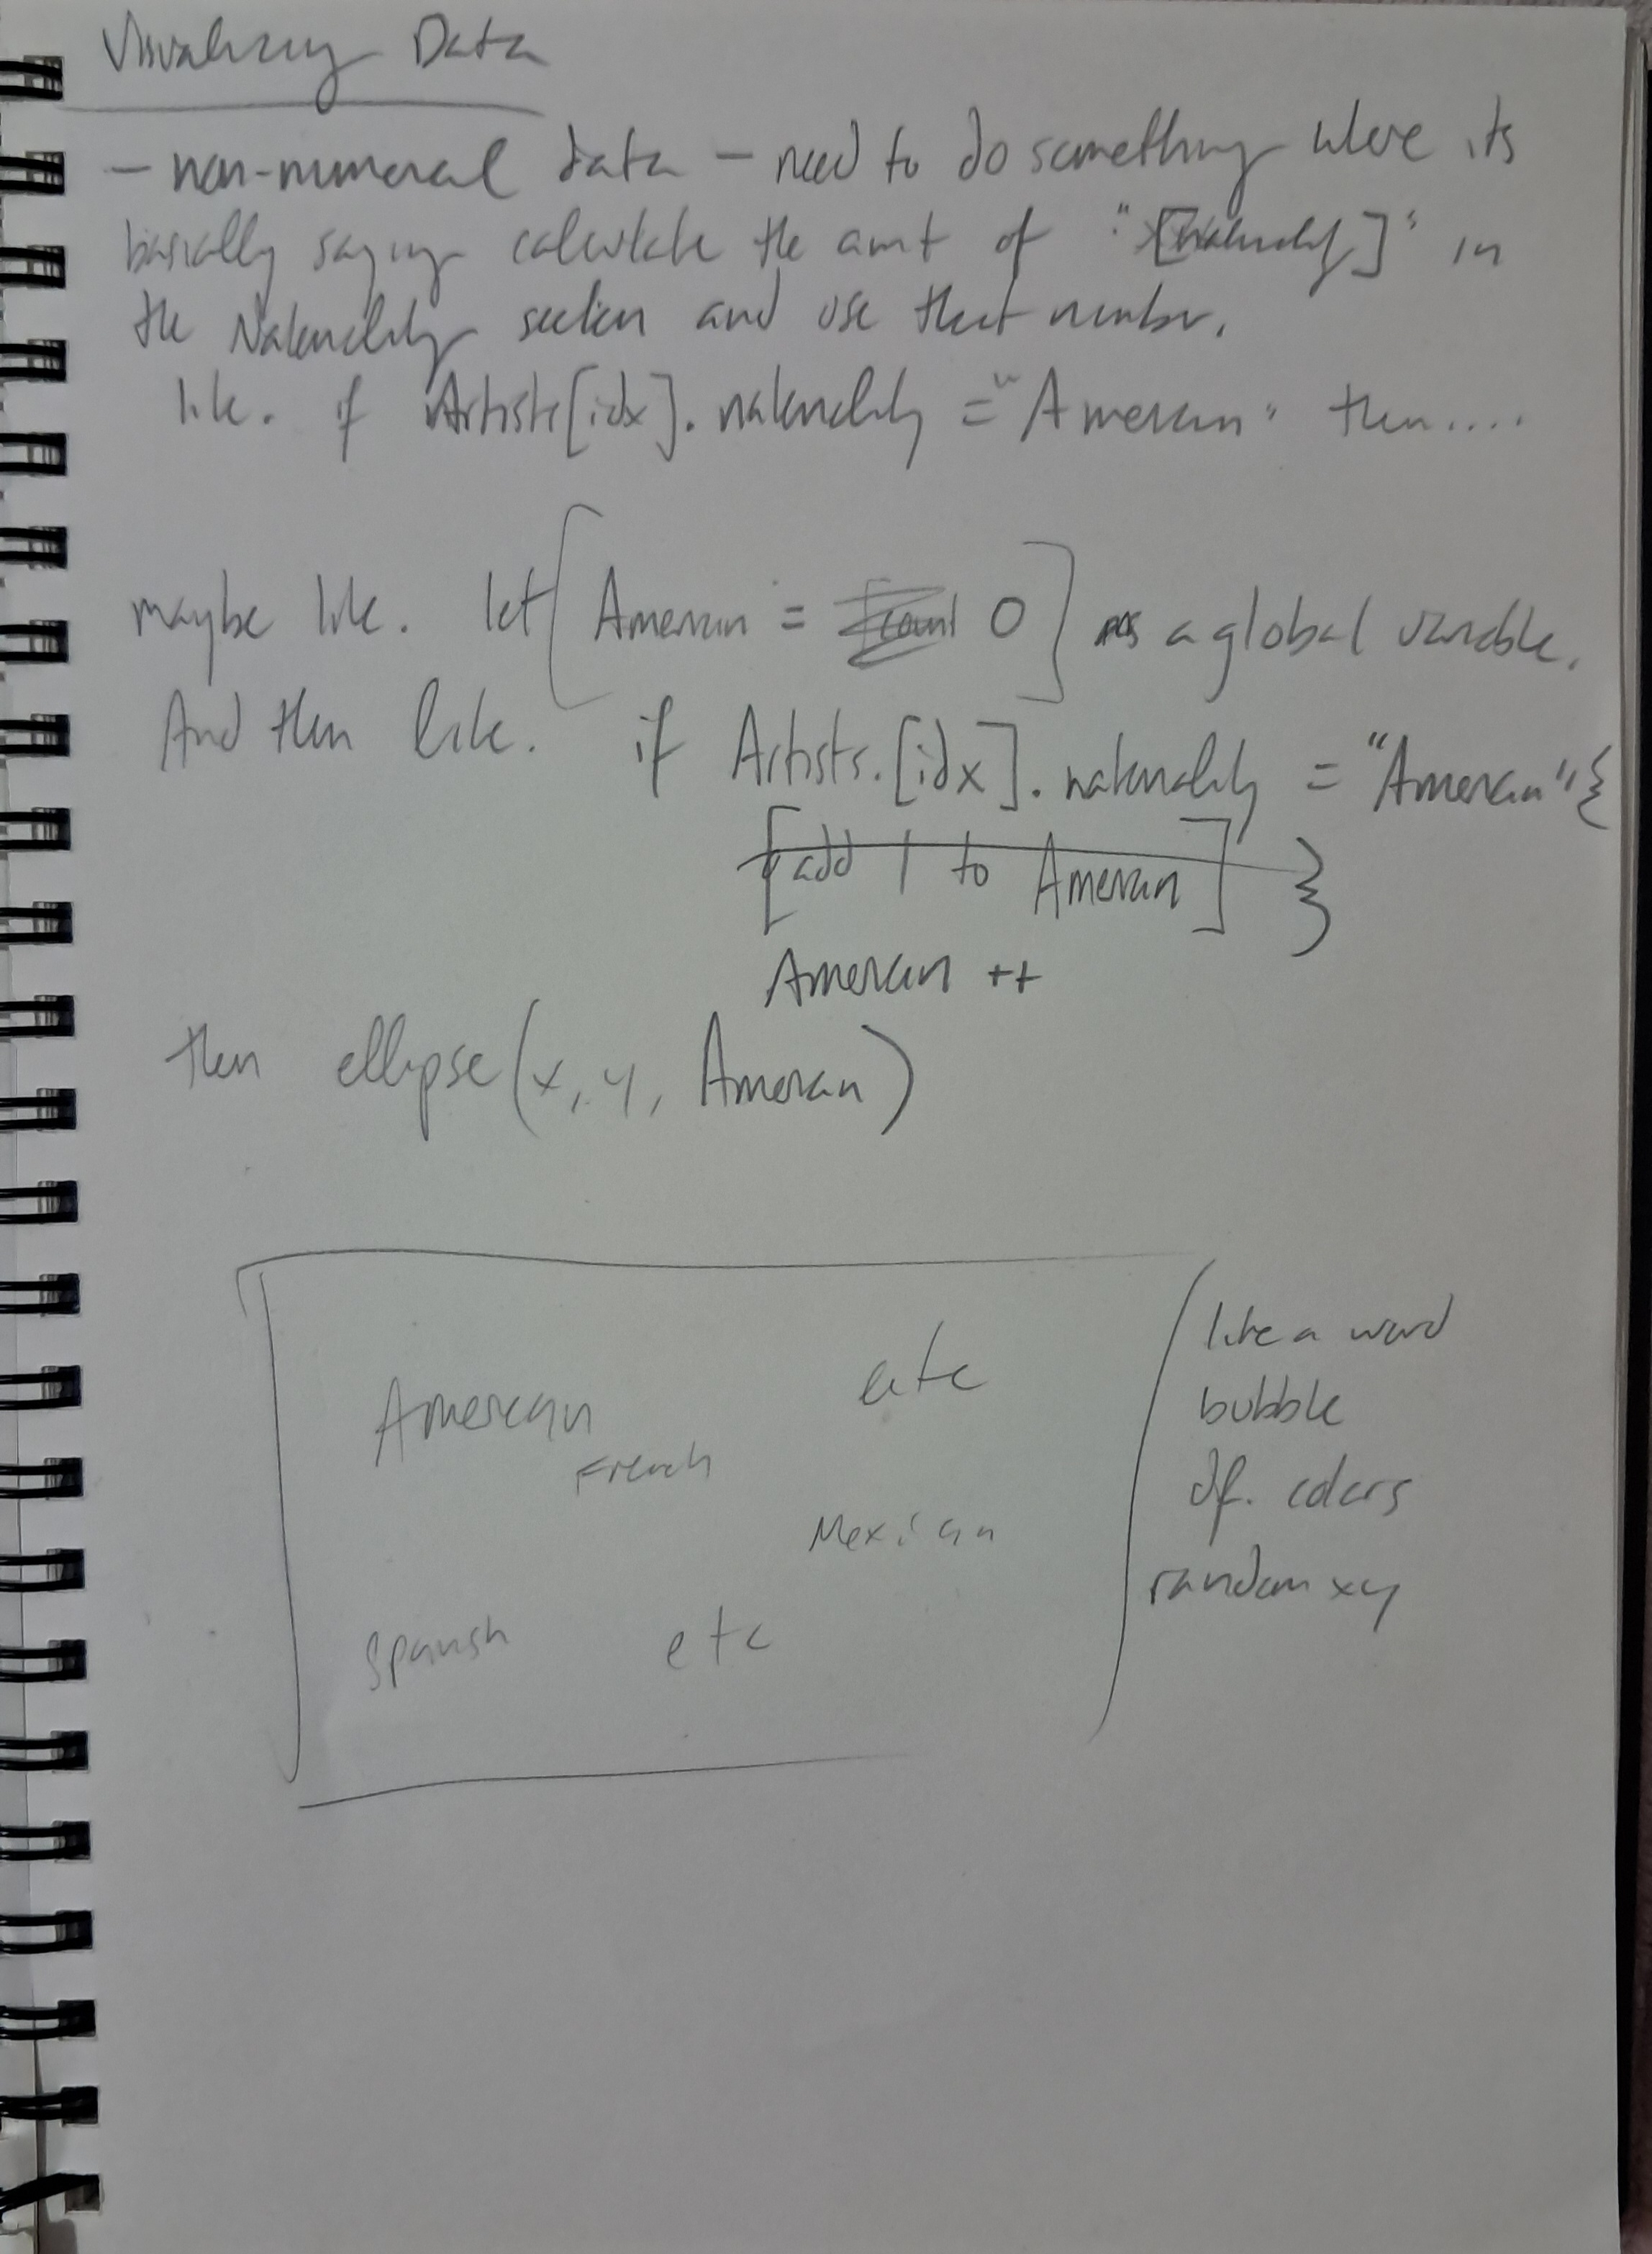 Visualizing Data
- non-numeral data - need to do something where its
basically saying calculate the amt of "[Nationality]" in
the Nationality section and use that number.
like. if Artists[idx].nationality = "American" then....
maybe like. let [American = 0] as a global variable.
And then like. if Artists.[idx].nationality = "American" {
[add 1 to American] }
American ++
then ellipse(x, y, American)
American
etc
French
Mexican
Spanish
etc
like a word
bubble
df. colors
random xy